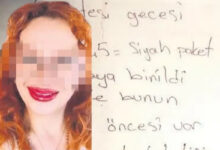 tesi gecesi
5 = Siyah paket
aya binildi
e bunun
öncesi var